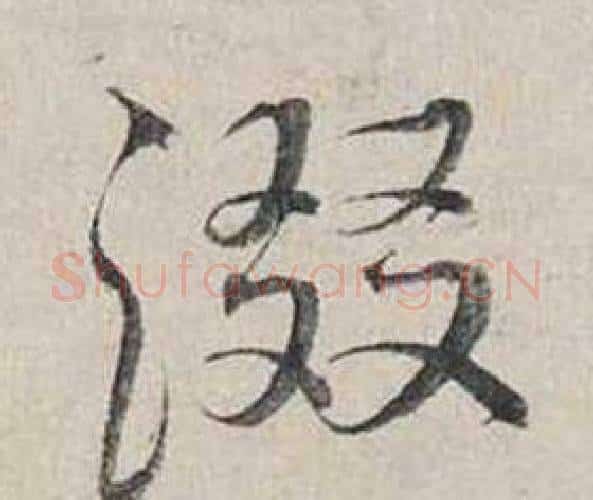 綴
Shufawang.CN